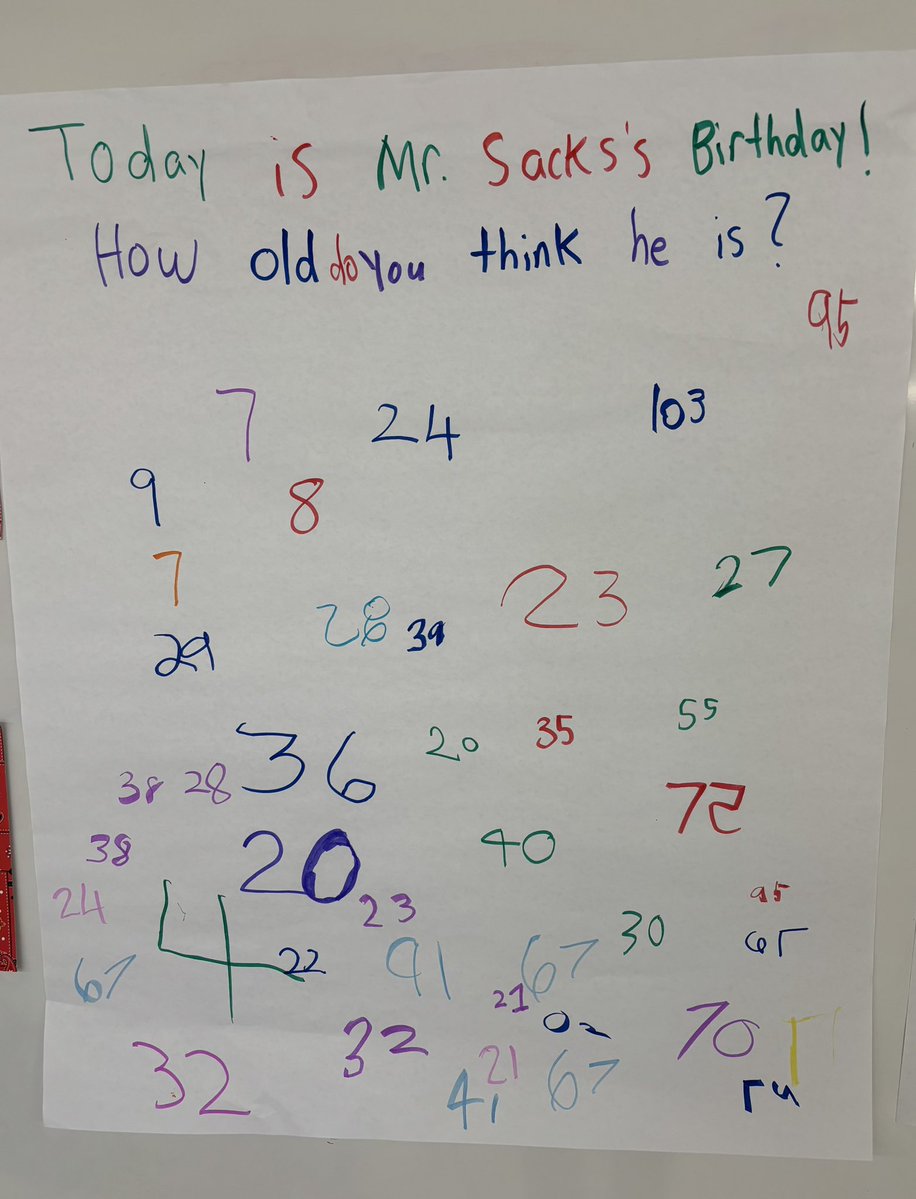 Today is Mr. Sacks's Birthday!
How old do you think he is?
95
7 24 103
9 8
7 23 27
29 28 39
36 20 35 55
38 28 72
38 20 40
24 4 23 95
67 22 91 67 30
21 70
32 32 21
41 67